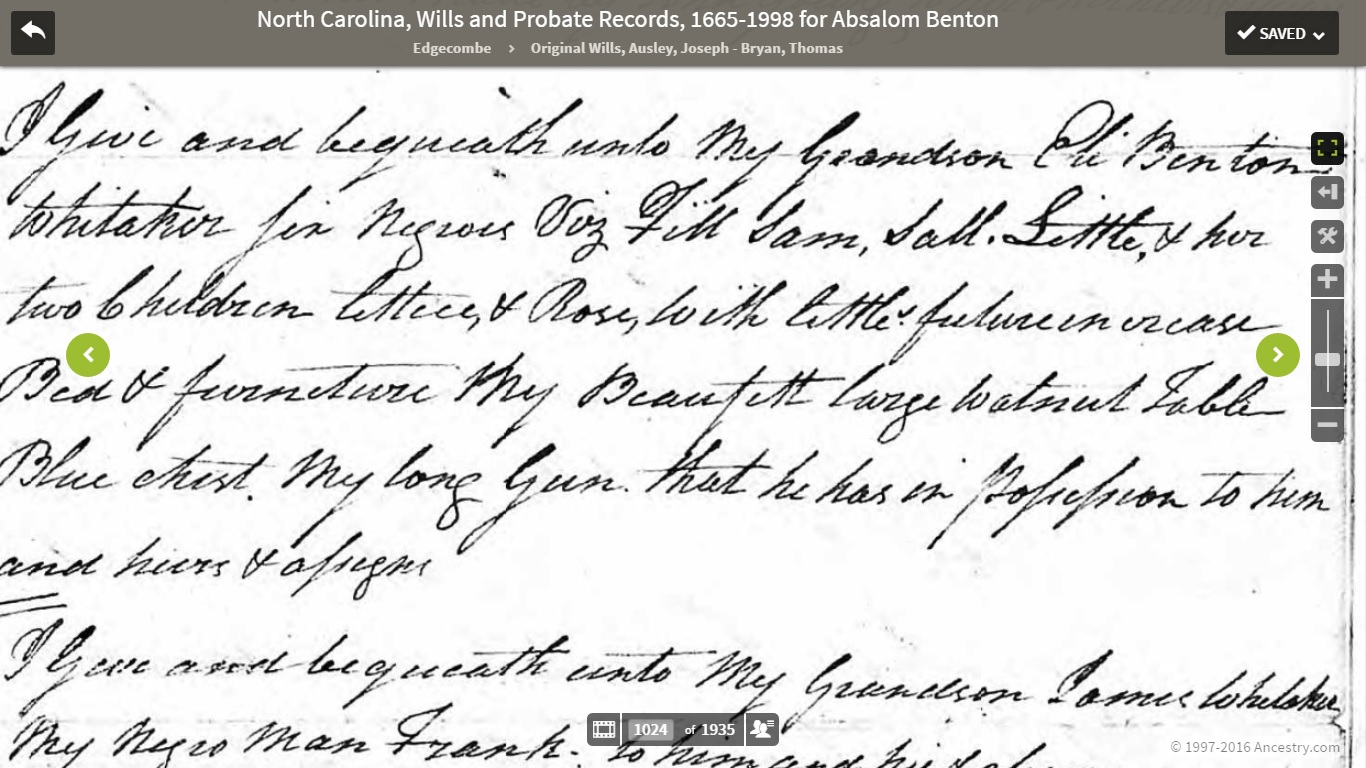 North Carolina, Wills and Probate Records, 1665-1998 for Absalom Benton
Edgecombe › Original Wills, Ausley, Joseph - Bryan, Thomas
SAVED
I Give and bequeath unto My Grandson Eli Benton
Whitaker six Negroes Viz Fill Sam, Sall. Little, & her
two Children lettice, & Rose, With little future increase
Bed & furneture My Beaufett large Walnut Table
Blue chest. My long Gun. that he has in possession to him
and heirs & assigns
I Give and bequeath unto My Grandson James Whitaker
My Negro Man Frank. to him and
1024 of 1935
© 1997-2016 Ancestry.com